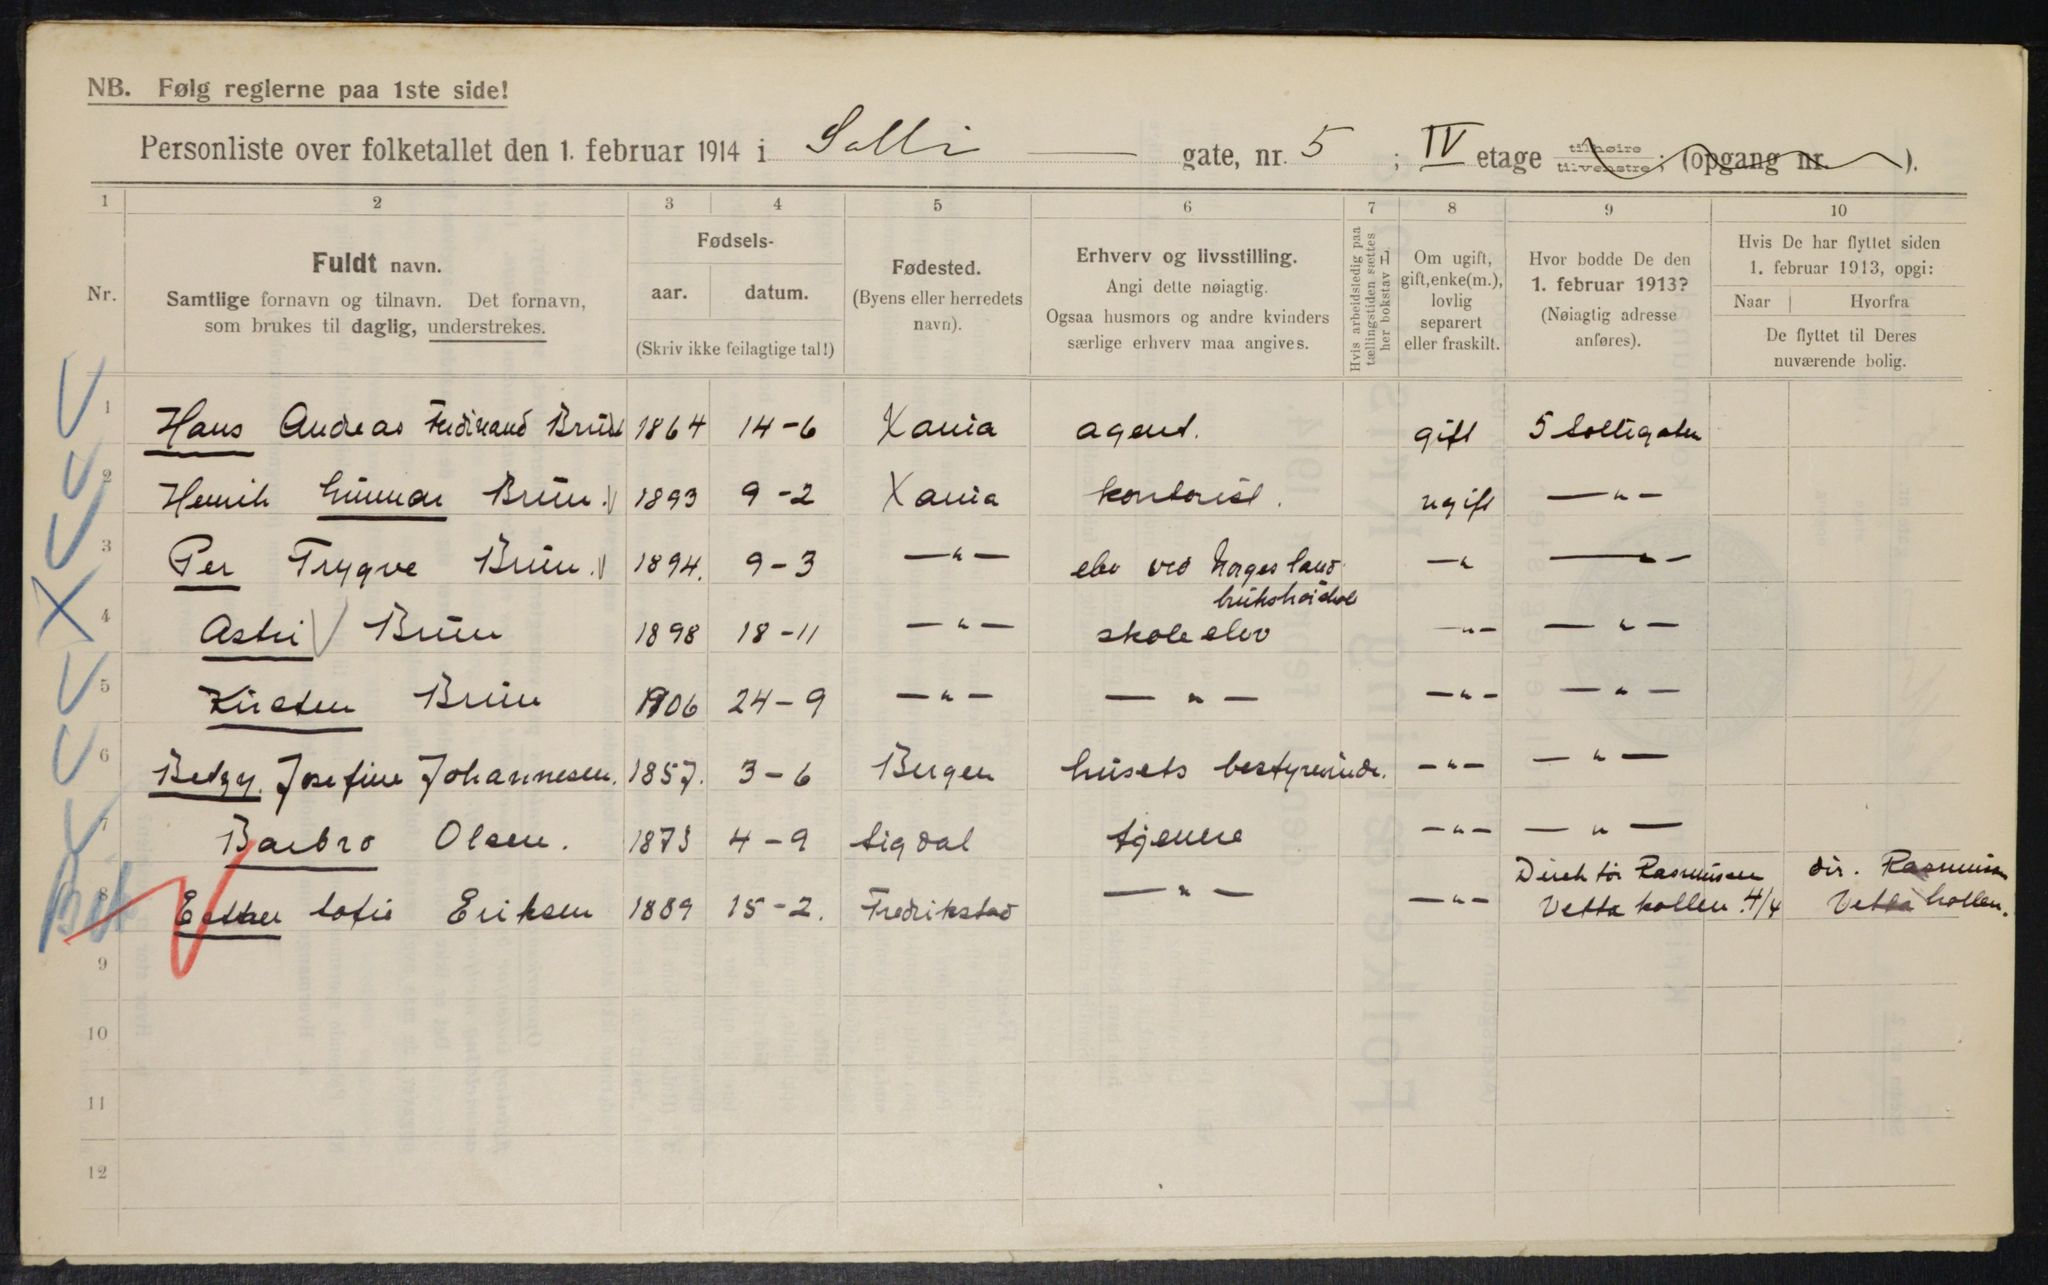 NB. Følg reglerne paa 1ste side!
Personliste over folketallet den 1. februar 1914 i Solli gate, nr. 5; IV etage tilhøire tilvenstre; (opgang nr. ).
1 2 3 4 5 6 7 8 9 10
Nr.
Fuldt navn.
Samtlige fornavn og tilnavn. Det fornavn,
som brukes til daglig, understrekes.
Fødsels-
aar. datum.
(Skriv ikke feilagtige tal!)
Fødested.
(Byens eller herredets
navn).
Erhverv og livsstilling.
Angi dette nøiagtig.
Ogsaa husmors og andre kvinders
særlige erhverv maa angives.
Hvis arbeidsledig paa
tællingstiden sættes
her bokstav L.
Om ugift,
gift, enke(m.),
lovlig
separert
eller fraskilt.
Hvor bodde De den
1. februar 1913?
(Nøiagtig adresse
anføres).
Hvis De har flyttet siden
1. februar 1913, opgi:
Naar Hvorfra
De flyttet til Deres
nuværende bolig.
1 Hans Andreas Ferdinand Brun 1864 14-6 Xania agent. gift 5 Solligaten
2 Henrik Gunnar Brun. 1893 9-2 Xania kontorist. ugift —"—
3 Per Trygve Brun. 1894. 9-3 —"— elev ved Norges land- —" —"—
brukshøiskole
4 Astri Brun 1898 18-11 —"— skoleelev —"— —"—
5 Kirsten Brun 1906 24-9 —"— —"— —"— —"—
6 Betzy. Josefine Johannesen. 1857. 3-6 Bergen husets bestyrerinde. —"— —"—
7 Barbro Olsen. 1873 4-9 Sigdal tjener —"— —"—
8 Esther Sofie Eriksen 1889 15-2. Fredrikstad —"— —"— Direktør Rasmussen dir. Rasmussen
Vettakollen. 4/4 Vettakollen.
9
10
11
12